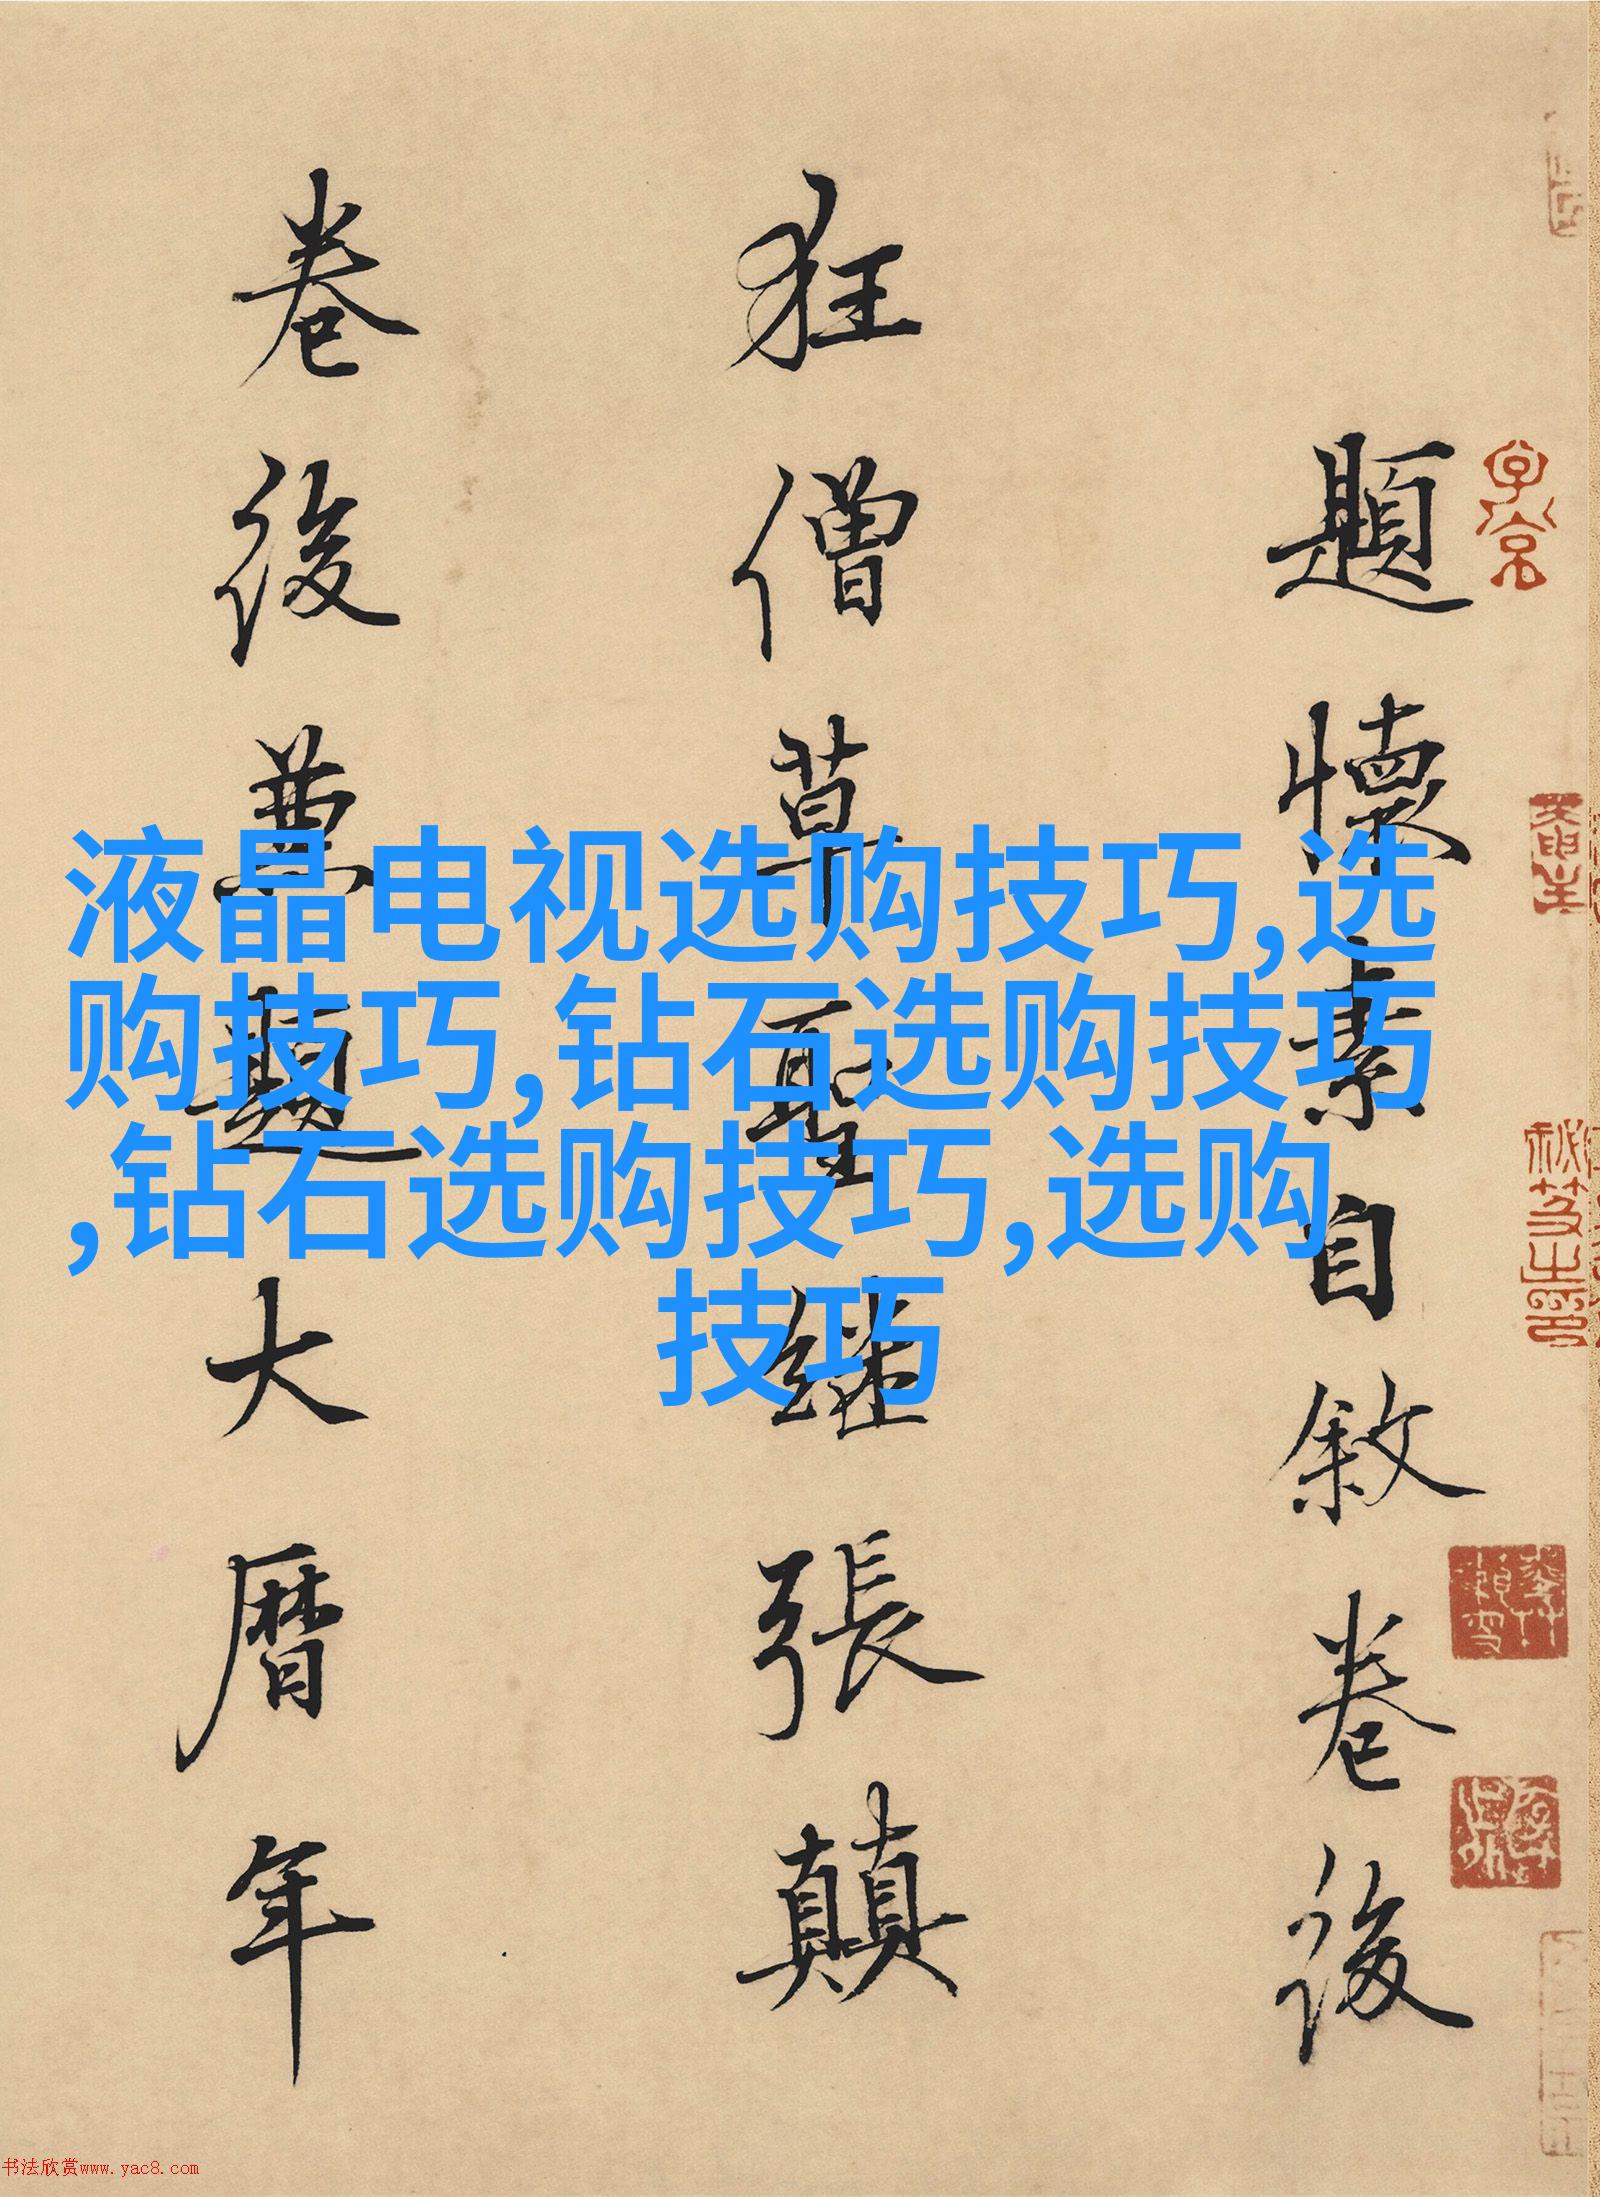 題懷素自敘卷後
狂僧草聖継張顛
卷後兼題大曆年
液晶电视选购技巧,选
购技巧,钻石选购技巧
,钻石选购技巧,选购
技巧
书法欣赏www.yac8.com